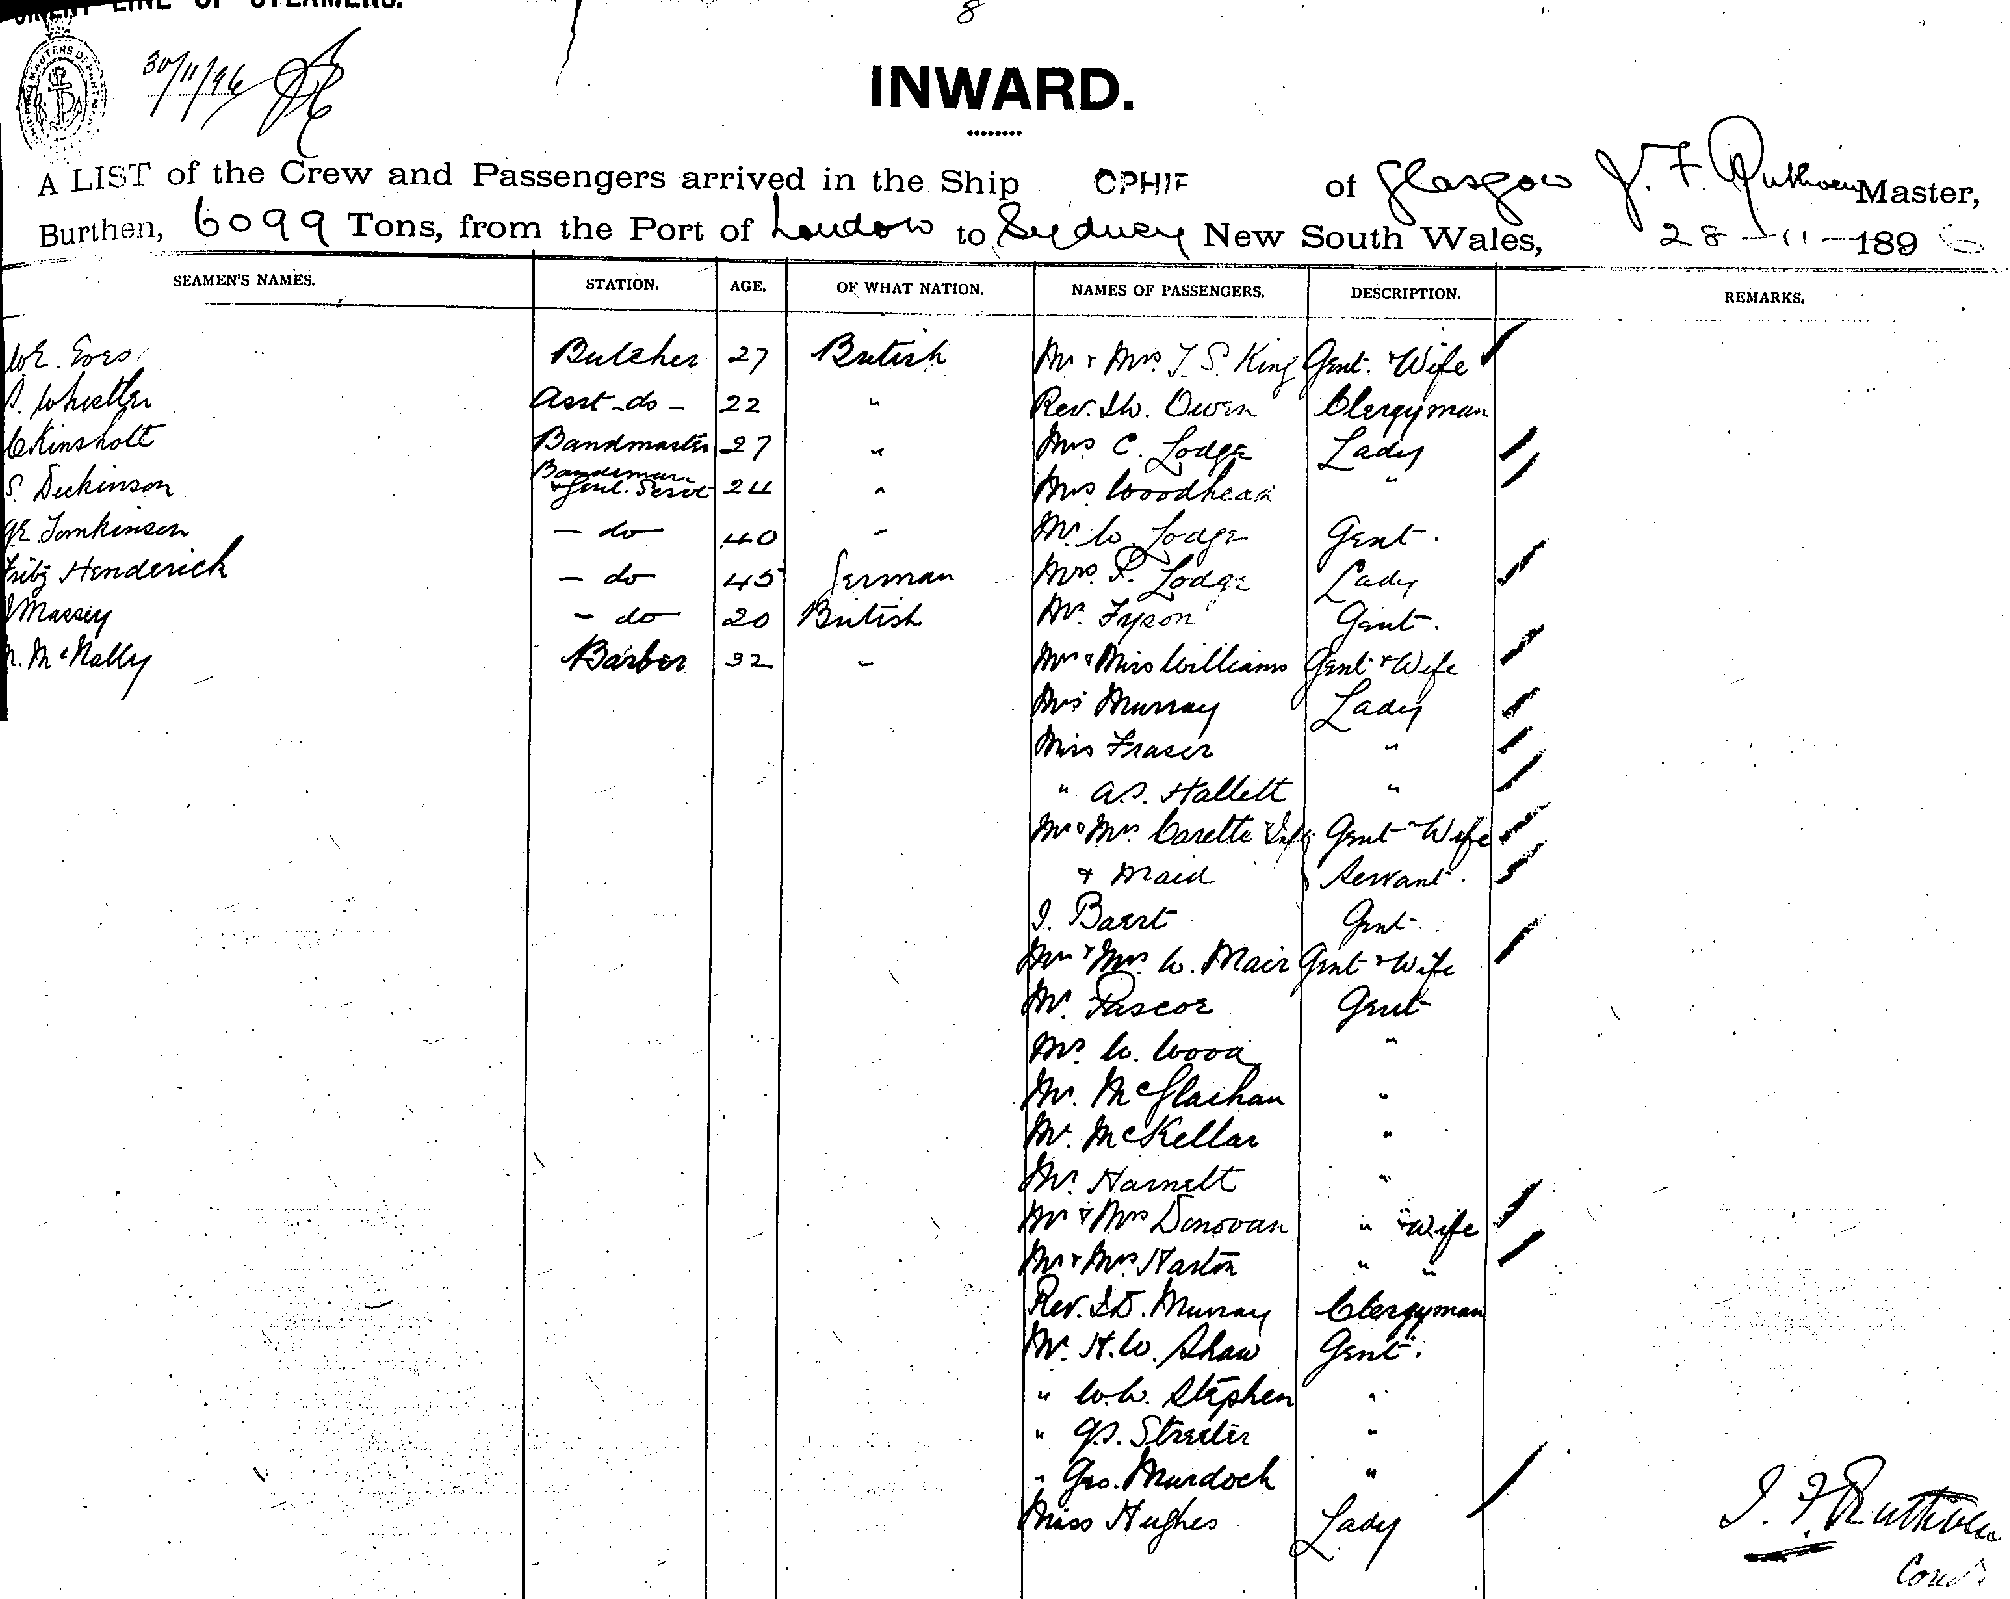 ORIENT LINE OF STEAMERS.
8
30/11/96
INWARD.
A LIST of the Crew and Passengers arrived in the Ship OPHIR of Glasgow J. F. Ruthven Master,
Burthen, 6099 Tons, from the Port of London to Sydney New South Wales, 28-11-1896
SEAMEN'S NAMES. STATION. AGE. OF WHAT NATION. NAMES OF PASSENGERS. DESCRIPTION. REMARKS.
Butcher 27 British Mr & Mrs T. S. King Gent. & Wife
Whistler Asst -do- 22 " Rev. Owen Clergyman
Kinsholt Bandmaster 27 " Mrs C. Lodge Lady
S. Dickinson Bandsman & Genl. Servt 24 " Mrs. Woodhead "
Tomkinson - do - 40 - Mr. W. Lodge Gent.
Fritz Henderick - do 45 German Mrs. P. Lodge Lady
Massey - do 20 British Mr. Tyson Gent.
McNally Barber 32 - Mr & Miss Williams Gent & Wife
Murray Lady
Miss Fraser "
" A.S. Hallett "
Mr & Mrs. Carette Inft Gent & Wife
& Maid Servant.
J. Baert Gent
Mr & Mrs. W. Mair Gent & Wife
Mr. Pascoe Gent
Mr. W. Wood "
Mr. McGlashan "
Mr. McKellar "
Mr. Harnett "
Mr & Mrs Donovan " & Wife
Mr & Mrs. Harton " "
Rev. Murray Clergyman
Mr. H.W. Shaw Gent.
" W.W. Stephen "
" G.S. Streeter "
" Geo. Murdoch "
Miss Hughes Lady
J. F. Ruthven